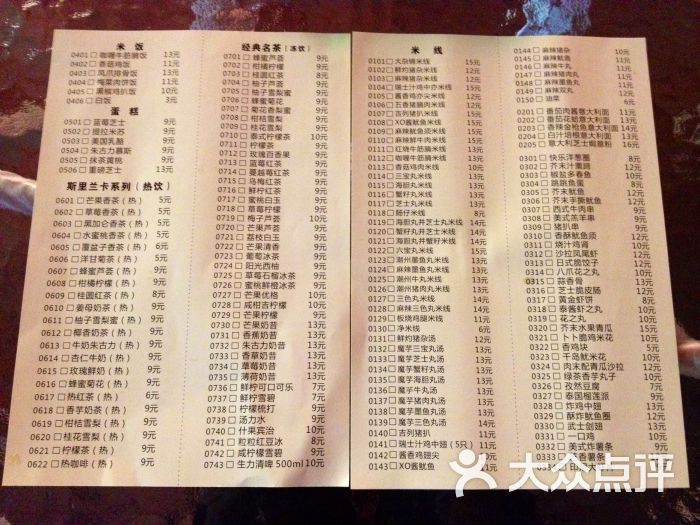 米 饭
0401 咖喱牛筋腩饭 13元
0402 香菇鸡饭 11元
0403 凤爪排骨饭 13元
0404 梅菜肉饼饭 11元
0405 黑椒鸡扒饭 9元
0406 白饭 3元
蛋 糕
0501 蓝莓芝士 9元
0502 提拉米苏 9元
0503 美国乳酪 9元
0504 朱古力慕斯 9元
0505 抹茶黄桃 9元
0506 重磅芝士 13元
斯里兰卡系列（热饮）
0601 芒果香茶（热） 5元
0602 草莓香茶（热） 5元
0603 黑加仑香茶（热） 5元
0604 水蜜桃香茶（热） 6元
0605 覆盆子香茶（热） 5元
0606 洋甘菊茶（热） 9元
0607 蜂蜜芦荟（热） 9元
0608 柑桔柠檬（热） 9元
0609 桂圆红茶（热） 8元
0610 姜母奶茶（热） 9元
0611 柚子雪梨蜜（热） 9元
0612 椰香奶茶（热） 9元
0613 牛奶朱古力（热）
0614 杏仁牛奶（热） 9元
0615 玫瑰鲜奶（热） 9元
0616 蜂蜜菊花（热） 9元
0617 热红茶（热） 6元
0618 香芋奶茶（热） 9元
0619 柑桔雪梨（热） 9元
0620 桂花雪梨（热） 9元
0621 柠檬茶（热） 9元
0622 热咖啡（热） 9元
经典名茶（冻饮）
0701 蜂蜜芦荟 9元
0702 柑橘柠檬 9元
0703 桂圆红茶 8元
0704 柚子芦荟 9元
0705 柚子雪梨蜜 9元
0706 蜂蜜菊花 9元
0707 菊花雪梨蜜 9元
0708 柑桔雪梨 9元
0709 桂花雪梨 9元
0710 泰式柠檬茶 10元
0711 柠檬茶 9元
0712 玫瑰百香果 9元
0713 草莓红茶 9元
0714 蔓越莓红茶 9元
0715 乌梅红茶 9元
0716 鲜柠红茶 9元
0717 蜜桃白玉 9元
0718 草莓柠檬 9元
0719 梅子芦荟 10元
0720 芒果白玉 9元
0721 荔枝白玉 9元
0722 芒果清香 9元
0723 葡萄冰茶 9元
0724 阳光西柚 9元
0725 草莓石榴冰茶 9元
0726 蜜桃鲜橙冰茶 9元
0727 芒果优格 10元
0728 咸柑吉柠檬 10元
0729 芒果柠檬 10元
0730 芒果奶昔 13元
0731 香蕉奶昔 13元
0732 朱古力奶昔 13元
0733 香草奶昔 13元
0734 草莓奶昔 13元
0735 薄荷奶昔 13元
0736 鲜柠可口可乐 7元
0737 鲜柠雪碧 7元
0738 柠檬梳打 9元
0739 汤力水 9元
0740 什果宾治 10元
0741 粒粒红豆冰 8元
0742 咸柠檬雪碧 9元
0743 生力清啤500ml 10元
米 线
0101 大杂锦米线 15元
0102 鲜灼猪杂米线 15元
0104 瑞士汁鸡中亦米线 15元
0105 酱香鸡亦尖米线 15元
0106 五香猪腩肉米线 15元
0107 吉列猪扒米线 15元
0108 XO酱鱿鱼米线 15元
0109 麻辣鱿鱼须米线 15元
0110 麻辣鲜牛肉米线 15元
0111 红烧牛筋腩米线 15元
0112 咖喱牛筋腩米线 15元
0113 一品香菇米线 11元
0114 三宝丸米线 11元
0115 海胆丸米线 11元
0116 蟹籽丸米线 11元
0117 芝士丸米线 11元
0118 肠仔米线 8元
0119 海胆丸并芝士丸米线 11元
0120 蟹籽丸并芝士米线 11元
0121 海胆丸并蟹籽米线 11元
0122 六宝丸米线 11元
0123 潮州墨鱼丸米线 11元
0124 麻辣墨鱼丸米线 11元
0125 潮州牛丸米线 11元
0126 潮州猪肉丸米线 11元
0127 三色丸米线 11元
0128 麻辣三色丸米线 14元
0129 板烧鸡腿米线 11元
0130 净米线 6元
0131 鲜灼猪杂汤 12元
0132 魔芋三宝丸汤 12元
0133 魔芋芝士丸汤 12元
0134 魔芋蟹籽丸汤 12元
0135 魔芋海胆丸汤 12元
0136 魔芋牛丸汤 12元
0137 魔芋猪肉丸汤 12元
0138 魔芋墨鱼丸汤 12元
0139 魔芋三色丸汤 12元
0140 吉列猪扒 11元
0141 瑞士汁鸡中翅（5只） 11元
0142 酱香鸡翅尖 11元
0143 XO酱鱿鱼 11元
0144 麻辣猪杂 10元
0145 麻辣鱿鱼 11元
0146 麻辣牛丸 11元
0147 麻辣猪肉丸 11元
0148 麻辣墨鱼丸 11元
0149 麻辣双丸 11元
0150 油菜 6元
0201 番茄肉酱意大利面
0202 番茄花蛤意大利面
0203 香辣金枪鱼意大利面
0204 白汁培根意大利面
0205 意大利芝士焗意粉 16元
0301 快乐洋葱圈 8元
0302 芥末汁墨鱼 13元
0303 椒盐多春鱼 10元
0304 跳跳鱼蛋 8元
0305 芥末鱿鱼 11元
0306 芥末手撕鱿鱼 10元
0307 西式牛肉串 9元
0308 美式羔羊串 9元
0309 猪扒串 9元
0310 香酥鱿鱼须 12元
0311 烧汁鸡膏 10元
0312 沙拉凤尾虾 12元
0313 日式脆饺子 12元
0314 八爪花之丸 10元
0315 蒜香骨 13元
0316 芝士脆皮肠 12元
0317 黄金虾饼 8元
0318 泰酱虾之丸 10元
0319 花之丸 10元
0320 芥末水果青瓜 15元
0321 卜卜脆鸡米花 10元
0322 香鸡块 5元
0323 千岛鱿米花 10元
0324 肉末配青瓜沙拉 12元
0325 绿茶香芋丸子 10元
0326 孜然豆腐 7元
0327 泰国榴莲派 9元
0328 炸鸡中翅 13元
0329 酥炸鱿鱼圈 12元
0330 武士剑翅 13元
0331 一口鸡 10元
0332 美式炸薯条 9元
0333 芝香薯条 10元
大众点评